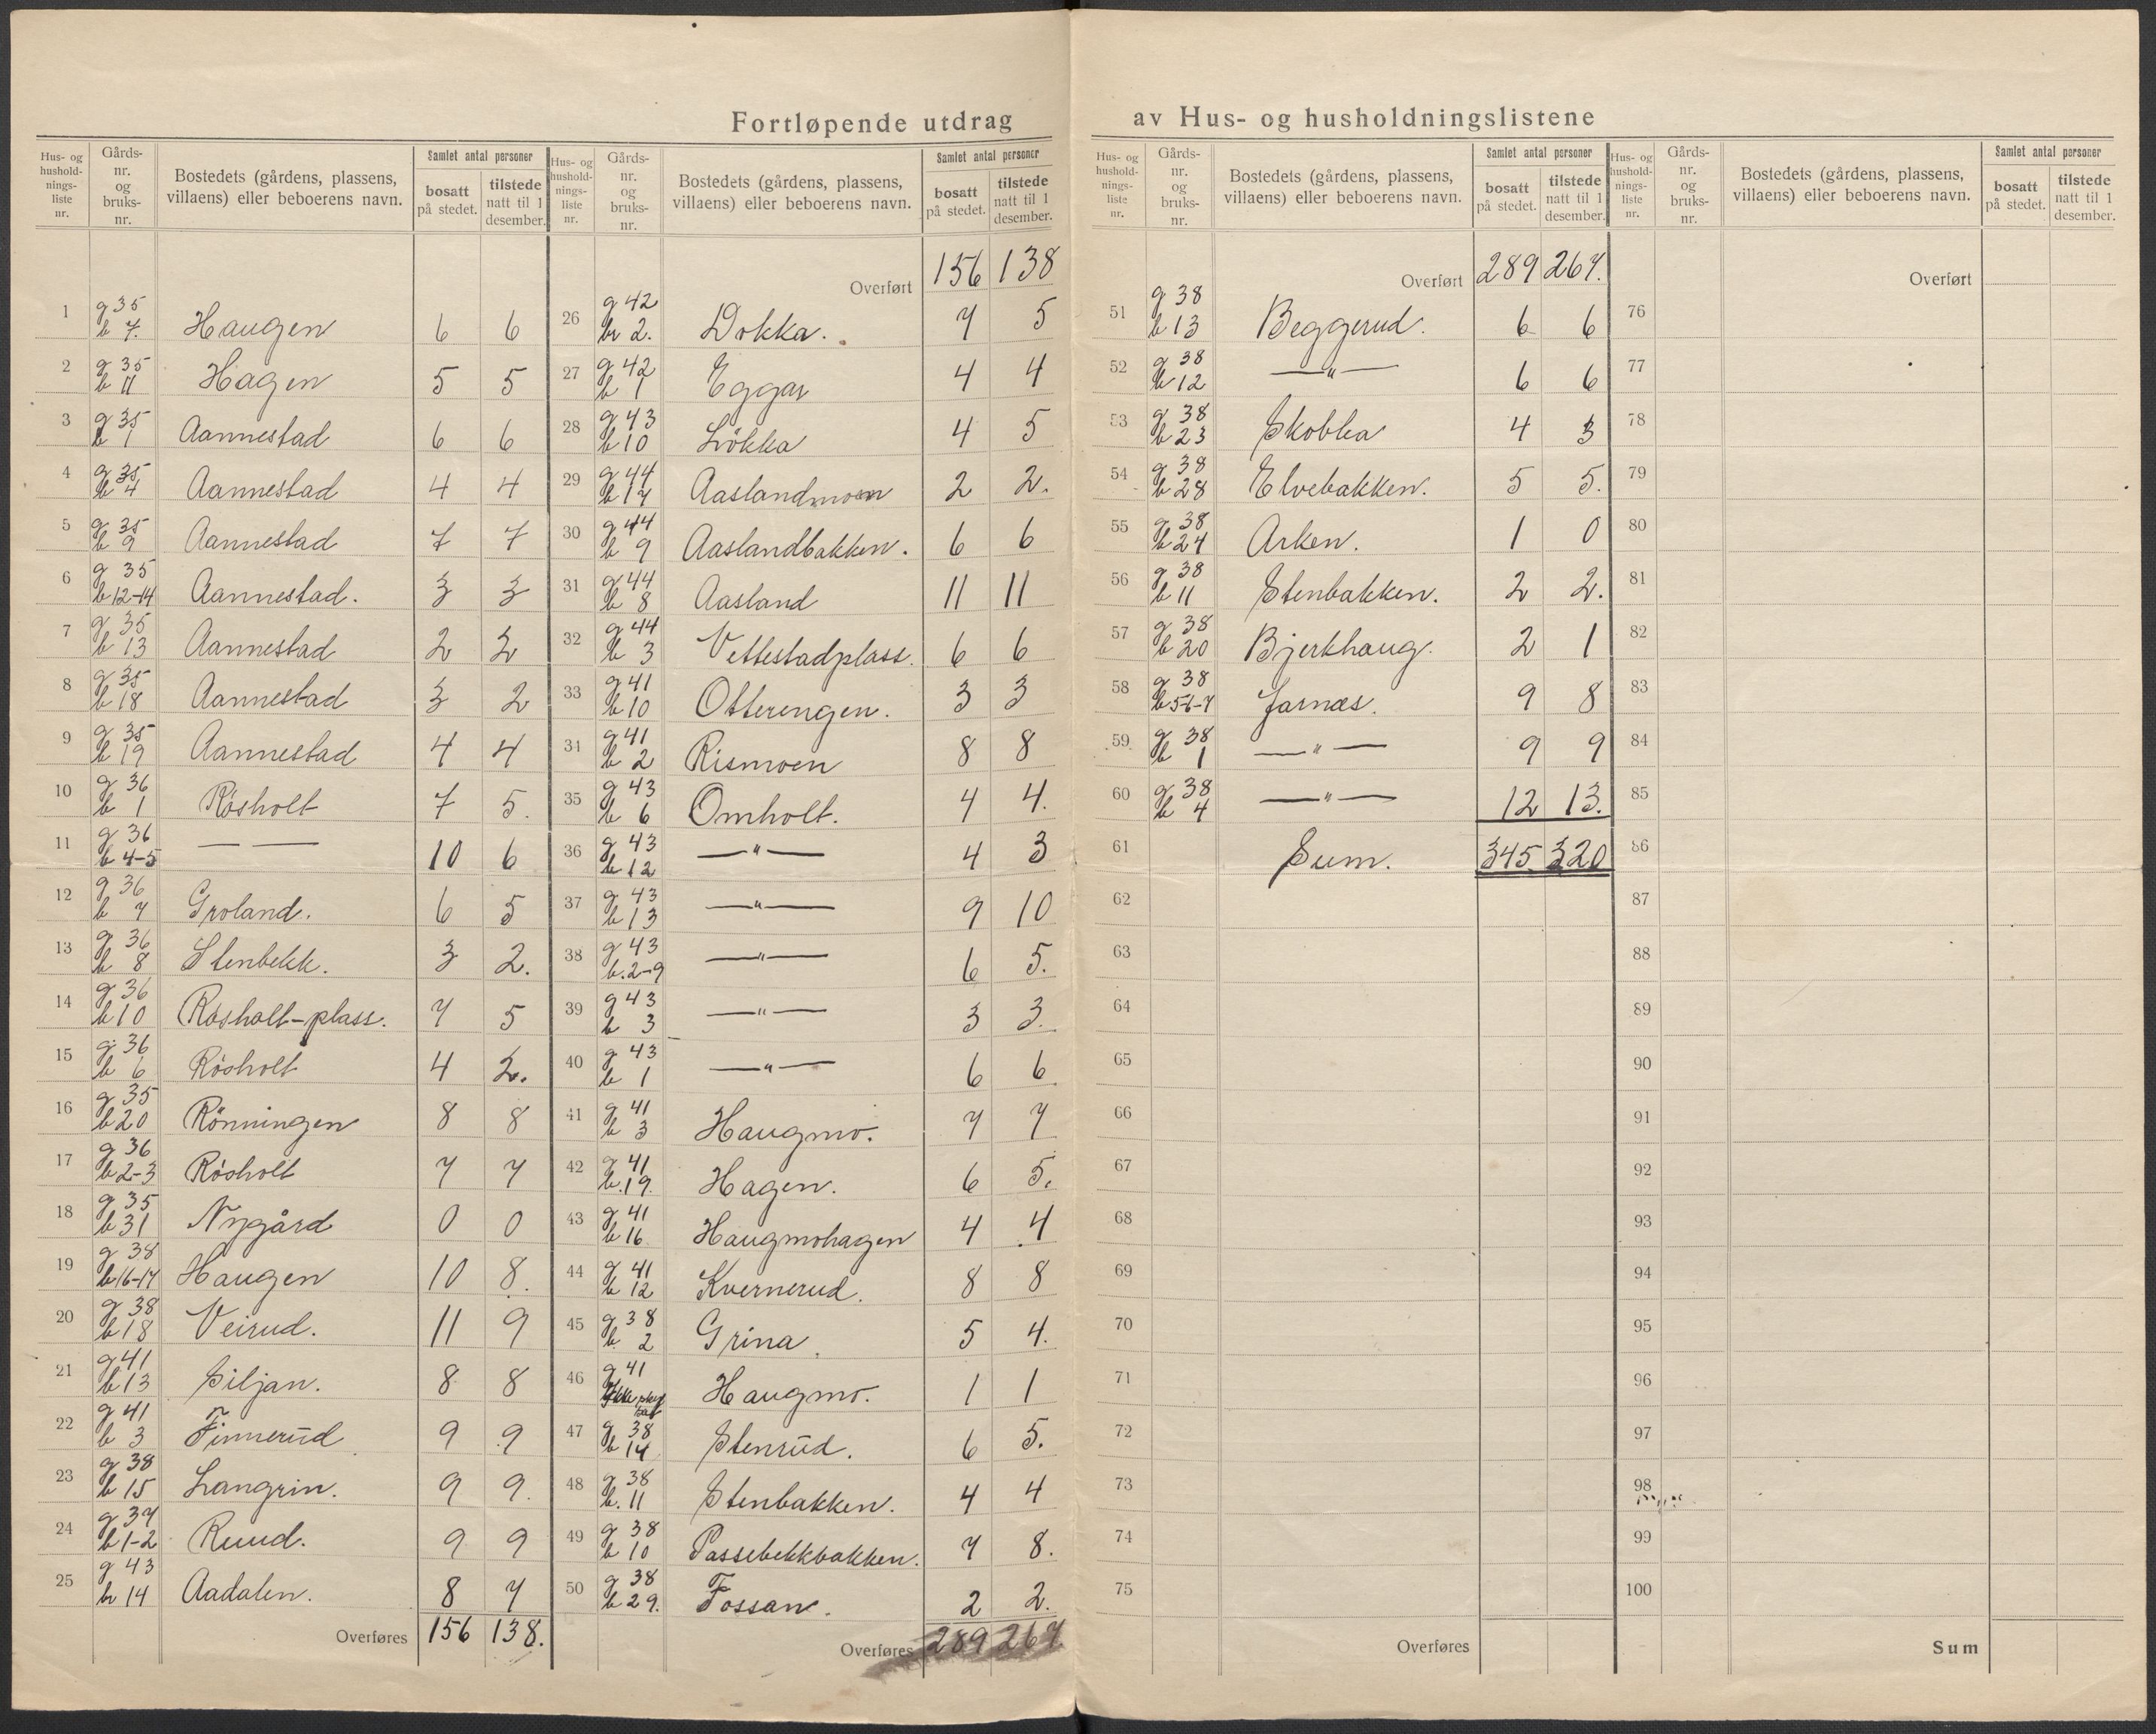 Fortløpende utdrag av Hus- og husholdningslistene
Hus- og husholdningsliste nr. | Gårds-nr. og bruks-nr. | Bostedets (gårdens, plassens, villaens) eller beboerens navn. | Samlet antal personer | bosatt på stedet. | tilstede natt til 1 desember.
1 g 35 b 7. Haugen 6 6
2 g 35 b 11 Hagen 5 5
3 g 35 b 1 Aannestad 6 6
4 g 35 b 4 Aannestad 4 4
5 g 35 b 9 Aannestad 7 7
6 g 35 b 12-14 Aannestad. 3 3
7 g 35 b 13 Aannestad 2 2
8 g 35 b 18 Aannestad 3 2
9 g 35 b 19 Aannestad 4 4
10 g 36 b 1 Røsholt 7 5.
11 g 36 b 4-5 — — 10 6
12 g 36 b 7 Groland. 6 5
13 g 36 b 8 Stenbekk. 3 2.
14 g 36 b 10 Røsholt-plass. 7 5
15 g 36 b 6 Røsholt 4 2.
16 g 35 b 20 Rönningen 8 8
17 g 36 b 2-3 Røsholt 7 7
18 g 35 b 31 Nygård 0 0
19 g 38 b 16-17 Haugen 10 8.
20 g 38 b 18 Veirud. 11 9
21 g 41 b 13 Siljan. 8 8
22 g 41 b 3 Finnerud 9 9
23 g 38 b 15 Langrin. 9 9.
24 g 37 b 1-2 Ruud. 9 9
25 g 43 br 14 Aadalen. 8 7
Overføres 156 138.
Hus- og husholdningsliste nr. | Gårds-nr. og bruks-nr. | Bostedets (gårdens, plassens, villaens) eller beboerens navn. | Samlet antal personer | bosatt på stedet. | tilstede natt til 1 desember.
Overført 156 138
26 g 42 br 2. Dokka. 7 5
27 g 42 b 1 Eggar 4 4
28 g 43 b 10 Lökka 4 5
29 g 44 b 17 Aaslandmoen 2 2.
30 g 44 b 9 Aaslandbakken. 6 6
31 g 44 b 8 Aasland 11 11
32 g 44 b 3 Vettestadplass. 6 6
33 g 41 b 10 Otterengen. 3 3
34 g 41 b 2 Rismoen 8 8
35 g 43 b 6 Omholt. 4 4.
36 g 43 b 12 —"— 4 3
37 g 43 b 13 —"— 9 10
38 g 43 b. 2-9 —"— 6 5.
39 g 43 b 3 —"— 3 3.
40 g 43 b 1 —"— 6 6
41 g 41 b 3 Haugmo. 7 7
42 g 41 b. 19. Hagen. 6 5.
43 g 41 b 16. Haugmohagen 4 4
44 g 41 b 12 Kvernerud. 8 8
45 g 38 b. 2 Grina. 5 4.
46 g 41 Haugmo. 1 1
47 g 38 b 14 Stenrud. 6 5.
48 g 38 b. 11 Stenbakken. 4 4
49 g 38 b 10 Passebekkbakken. 7 8.
50 g 38 b 29. Fossan. 2 2.
Overføres 289 267.
Hus- og husholdningsliste nr. | Gårds-nr. og bruks-nr. | Bostedets (gårdens, plassens, villaens) eller beboerens navn. | Samlet antal personer | bosatt på stedet. | tilstede natt til 1 desember.
Overført 289 267.
51 g 38 b 13 Beggerud. 6 6
52 g 38 b 12 —"— 6 6
53 g 38 b 23 Skobba 4 3
54 g 38 b 28 Elvebakken. 5 5.
55 g 38 b 24 Arken. 1 0
56 g 38 b 11 Stenbakken. 2 2.
57 g 38 b 20 Bjerkhaug. 2 1
58 g 38 b 5-6-7 Jarnæs. 9 8
59 g 38 b 1 —"— 9 9
60 g 38 b 4 —"— 12 13.
61 Sum. 345. 320
62
63
64
65
66
67
68
69
70
71
72
73
74
75
Overføres
Hus- og husholdningsliste nr. | Gårds-nr. og bruks-nr. | Bostedets (gårdens, plassens, villaens) eller beboerens navn. | Samlet antal personer | bosatt på stedet. | tilstede natt til 1 desember.
Overført
76
77
78
79
80
81
82
83
84
85
86
87
88
89
90
91
92
93
94
95
96
97
98
99
100
Sum